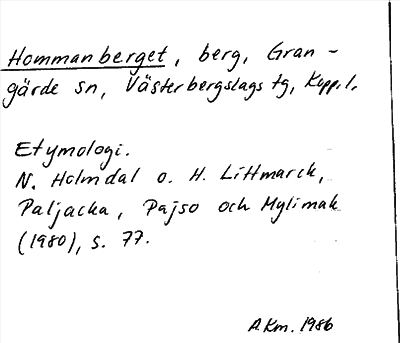 Hommanberget, berg, Gran-
gärde sn, Västerbergslags tg, Kopp. l.
Etymologi.
N. Holmdal o. H. Littmarck,
Paljacka, Pajso och Mylimak
(1980), s. 77.
A.Km. 1986